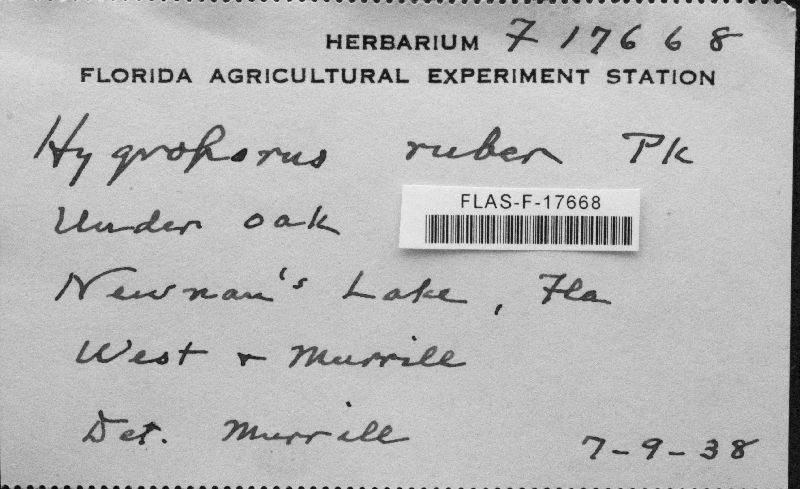 HERBARIUM F 17668
FLORIDA AGRICULTURAL EXPERIMENT STATION
Hygrophorus ruber Pk
FLAS-F-17668
Under oak
Newnan's Lake, Fla
West + Murrill
Det. Murrill
7-9-38